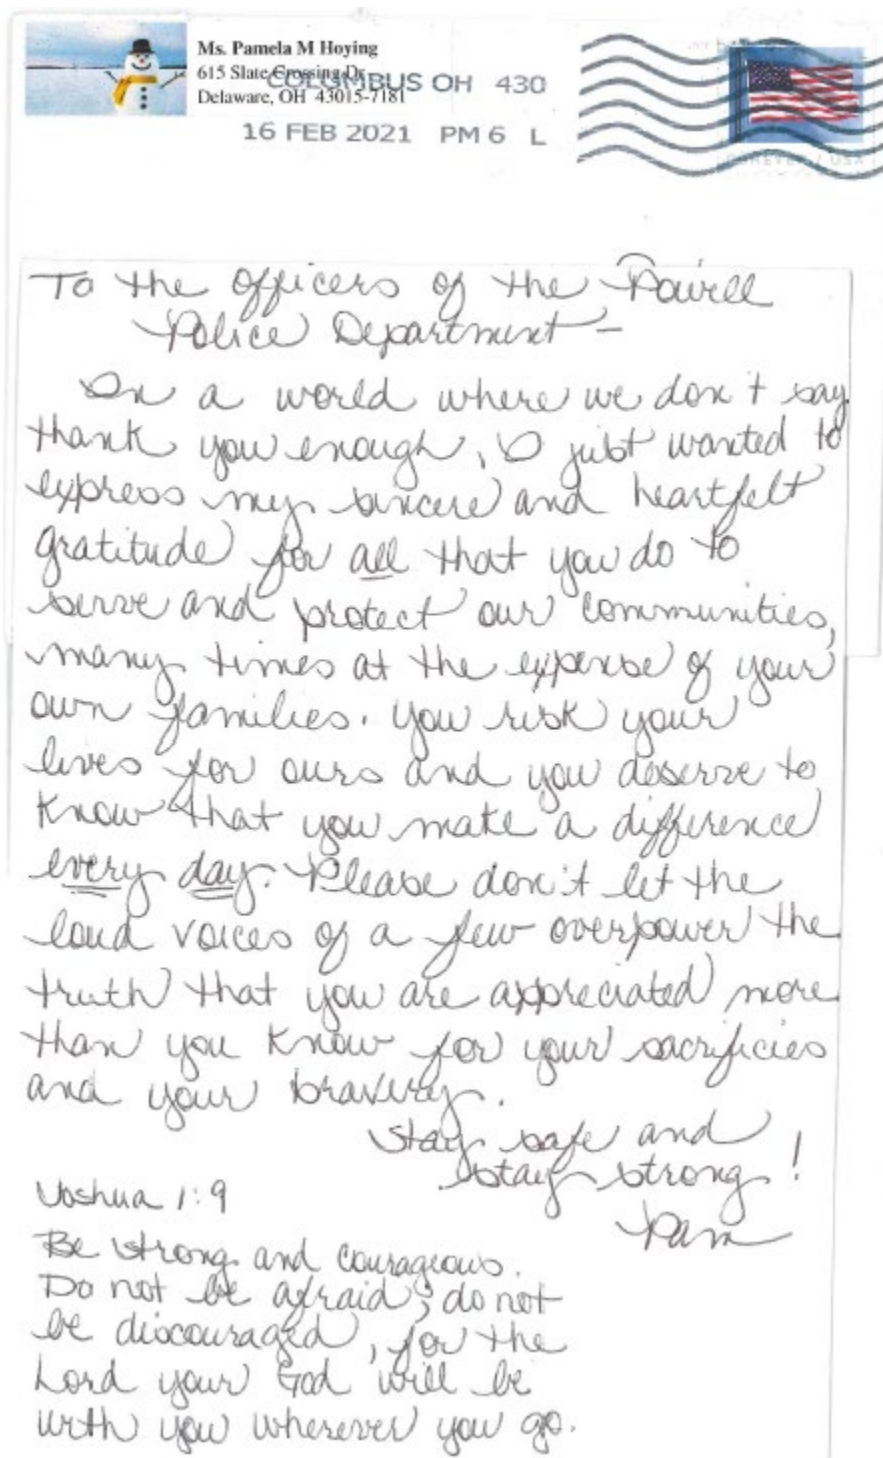 Ms. Pamela M Hoying
615 Slate Crossing Dr
Delaware, OH 43015-7181
COLUMBUS OH 430
16 FEB 2021 PM 6 L
FOREVER / USA
To the officers of the Powell
Police Department –
In a world where we don't say
thank you enough, I just wanted to
express my sincere and heartfelt
gratitude for all that you do to
serve and protect our communities,
many times at the expense of your
own families. You risk your
lives for ours and you deserve to
know that you make a difference
every day. Please don't let the
loud voices of a few overpower the
truth that you are appreciated more
than you know for your sacrificies
and your bravery.
Stay safe and
stay strong!
Pam
Joshua 1:9
Be strong and courageous.
Do not be afraid; do not
be discouraged, for the
Lord your God will be
with you wherever you go.